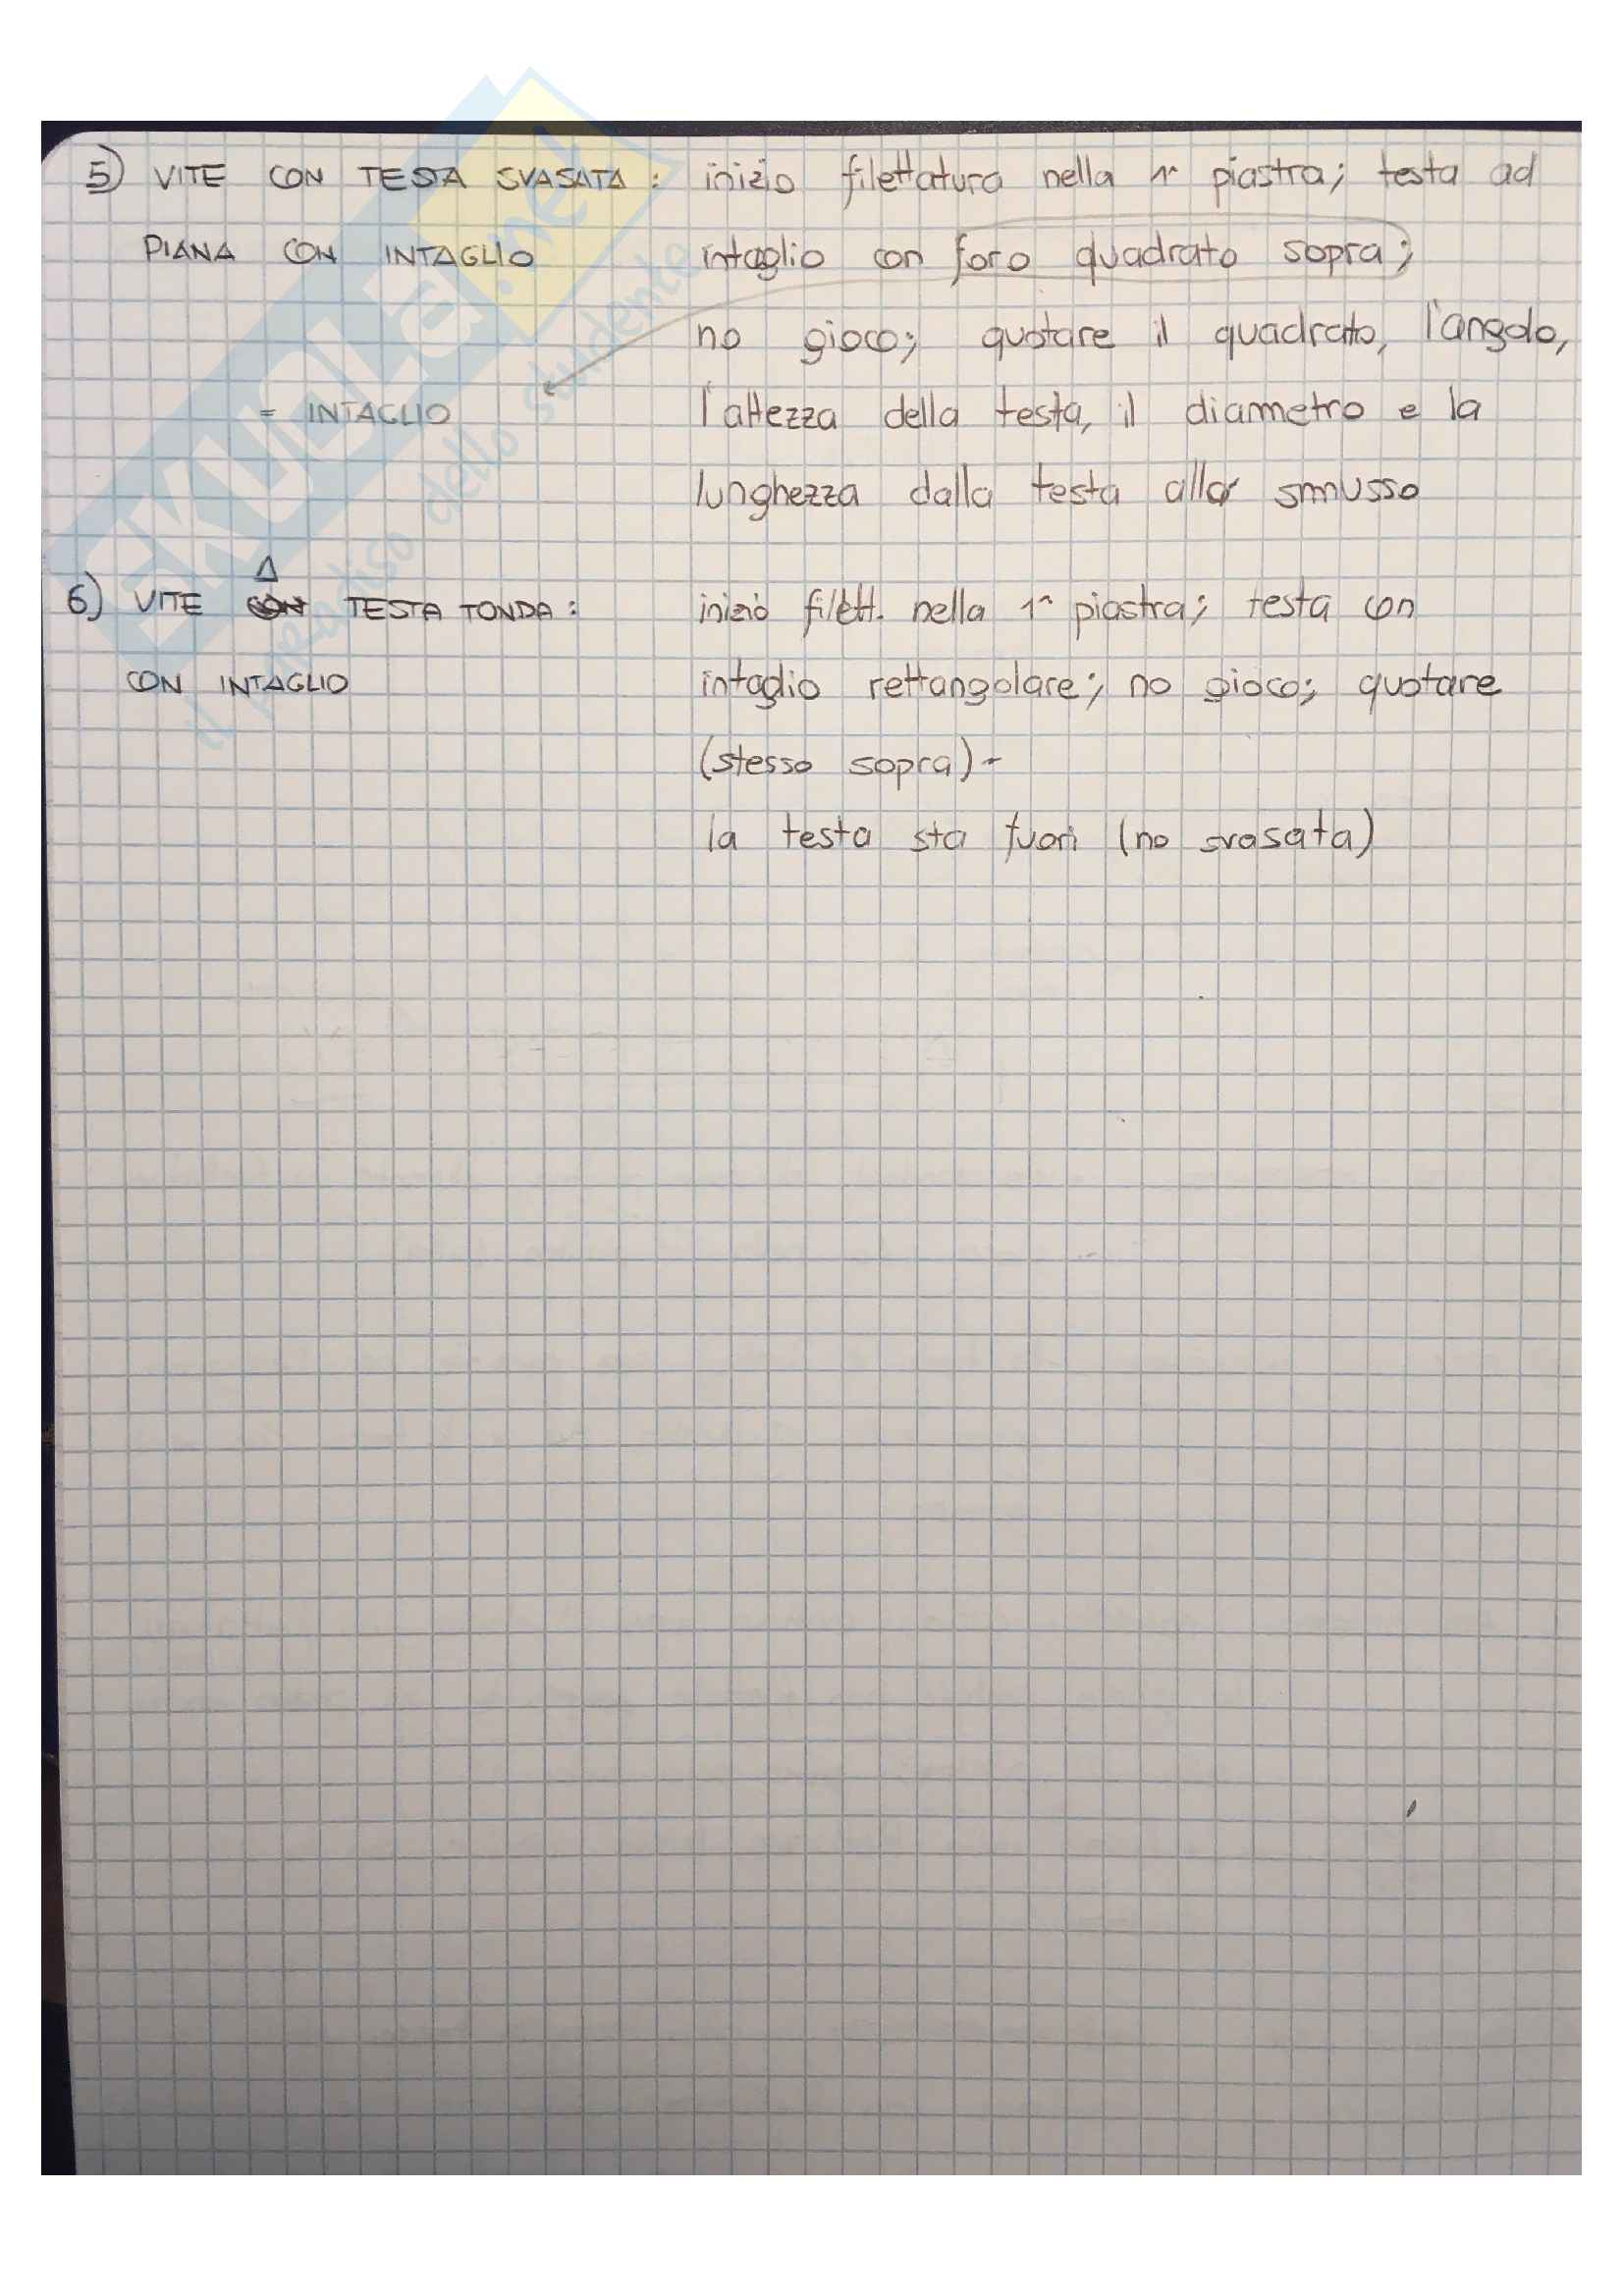 5) VITE CON TESTA SVASATA : inizio filettatura nella 1^ piastra; testa ad
PIANA CON INTAGLIO intaglio con foro quadrato sopra;
no gioco; quotare il quadrato, l'angolo,
= INTAGLIO l'altezza della testa, il diametro e la
lunghezza dalla testa allo smusso
A
6) VITE CON TESTA TONDA : inizio filett. nella 1^ piastra; testa con
CON INTAGLIO intaglio rettangolare; no gioco; quotare
(stesso sopra) -
la testa sta fuori (no svasata)
SKUOLA.net
il paradiso dello studente